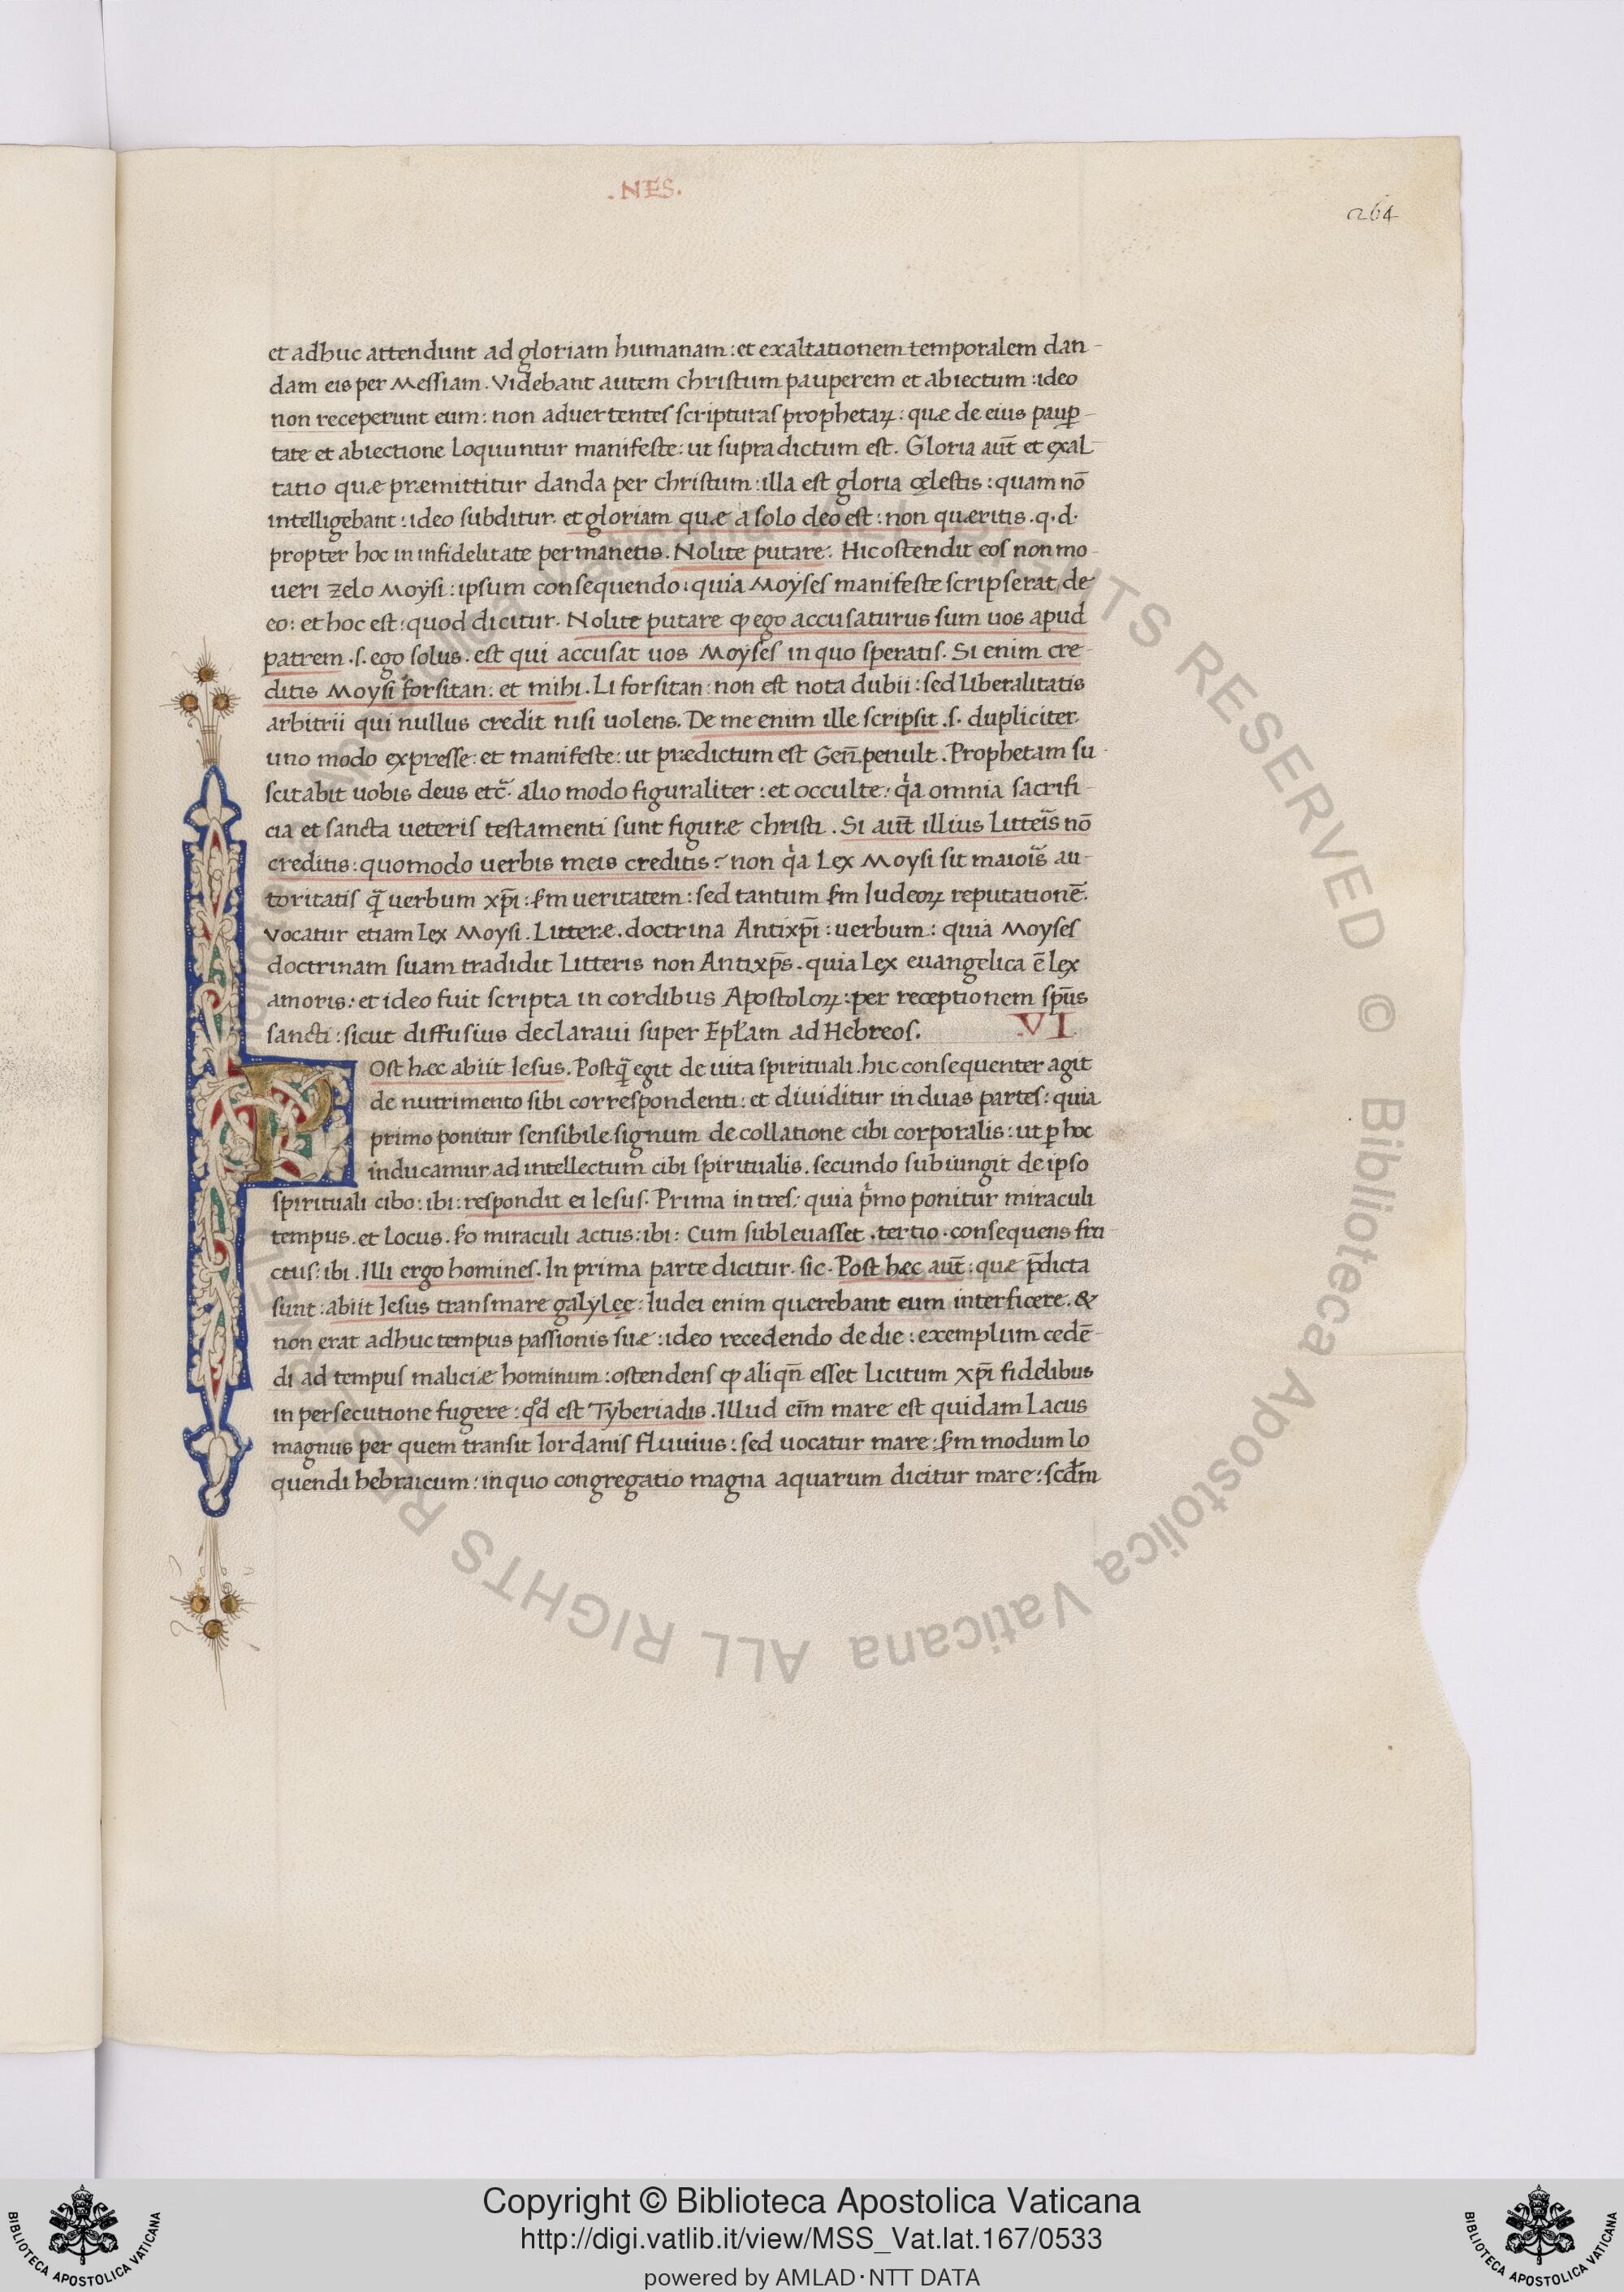 .NES.
264
et adhuc attendunt ad gloriam humanam: et exaltationem temporalem dan-
dam eis per Messiam. Videbant autem christum pauperem et abiectum: ideo
non receperunt eum: non aduertentes scripturas prophetaꝝ: quæ de eius paup̱-
tate et abiectione loquuntur manifeste: ut supradictum est. Gloria aut̄ et exal-
tatio quæ præmittitur danda per christum: illa est gloria cęlestis: quam nō
intelligebant: ideo subditur. et gloriam quæ a solo deo est: non quæritis. q.d.
propter hoc in infidelitate permanetis. Nolite putare. Hic ostendit eos non mo-
ueri zelo Moẏsi: ipsum consequendo: quia Moẏses manifeste scripserat de
eo: et hoc est: quod dicitur. Nolite putare ꝙ ego accusaturus sum uos apud
patrem .s. ego solus. est qui accusat uos Moẏses in quo speratis. Si enim cre-
ditis Moysi forsitan: et mihi. Li forsitan: non est nota dubii: sed liberalitatis
arbitrii qui nullus credit nisi uolens. De me enim ille scripsit .s. dupliciter.
uno modo expresse: et manifeste: ut prædictum est Gen̄. penult. Prophetam su-
scitabit uobis deus etc̄. alio modo figuraliter: et occulte: qͥa omnia sacrifi-
cia et sancta ueteris testamenti sunt figuræ christi. Si aut̄ illius litteīs nō
creditis: quomodo uerbis meis creditis? non qͥa lex Moysi sit maioīs au-
toritatis q̄ uerbum xp̄i: ẜm ueritatem: sed tantum ẜm Iudeoꝝ reputationē.
Vocatur etiam lex Moysi. Litteræ. doctrina Antixp̄i: uerbum: quia Moyses
doctrinam suam tradidit litteris non Antixp̄s. quia lex euangelica ē lex
amoris: et ideo fuit scripta in cordibus Apostoloꝝ: per receptionem sp̄us
sancti: sicut diffusius declaraui super Epl̄am ad Hebreos.
VI
Post hæc abiit Iesus. Postq̄ egit de uita spirituali. hic consequenter agit
de nutrimento sibi correspondenti: et diuiditur in duas partes: quia
primo ponitur sensibile signum de collatione cibi corporalis: ut ꝑ hoc
inducamur ad intellectum cibi spiritualis. secundo subiungit de ipso
spirituali cibo: ibi: respondit ei Iesus. Prima in tres: quia pͥmo ponitur miraculi
tempus. et locus. ẜo miraculi actus: ibi: Cum subleuasset. tertio. consequens fru-
ctus: ibi. Illi ergo homines. In prima parte dicitur. sic. Post hæc aut̄: quæ p̄dicta
sunt: abiit Iesus trans mare galylęę: Iudei enim quærebant eum interficere. &
non erat adhuc tempus passionis suæ: ideo recedendo dedie: exemplum cedē-
di ad tempus maliciæ hominum: ostendens ꝙ aliqn̄ esset licitum xp̄i fidelibus
in persecutione fugere: qͦd est Tyberiadis. Illud eīm mare est quidam lacus
magnus per quem transit Iordanis fluuius: sed uocatur mare: ẜm modum lo
quendi hebraicum: in quo congregatio magna aquarum dicitur mare: scđm
Copyright © Biblioteca Apostolica Vaticana
http://digi.vatlib.it/view/MSS_Vat.lat.167/0533
powered by AMLAD·NTT DATA
BIBLIOTECA APOSTOLICA VATICANA
BIBLIOTECA APOSTOLICA VATICANA
Biblioteca Apostolica Vaticana ALL RIGHTS RESERVED © Biblioteca Apostolica Vaticana ALL RIGHTS RESERVED ©